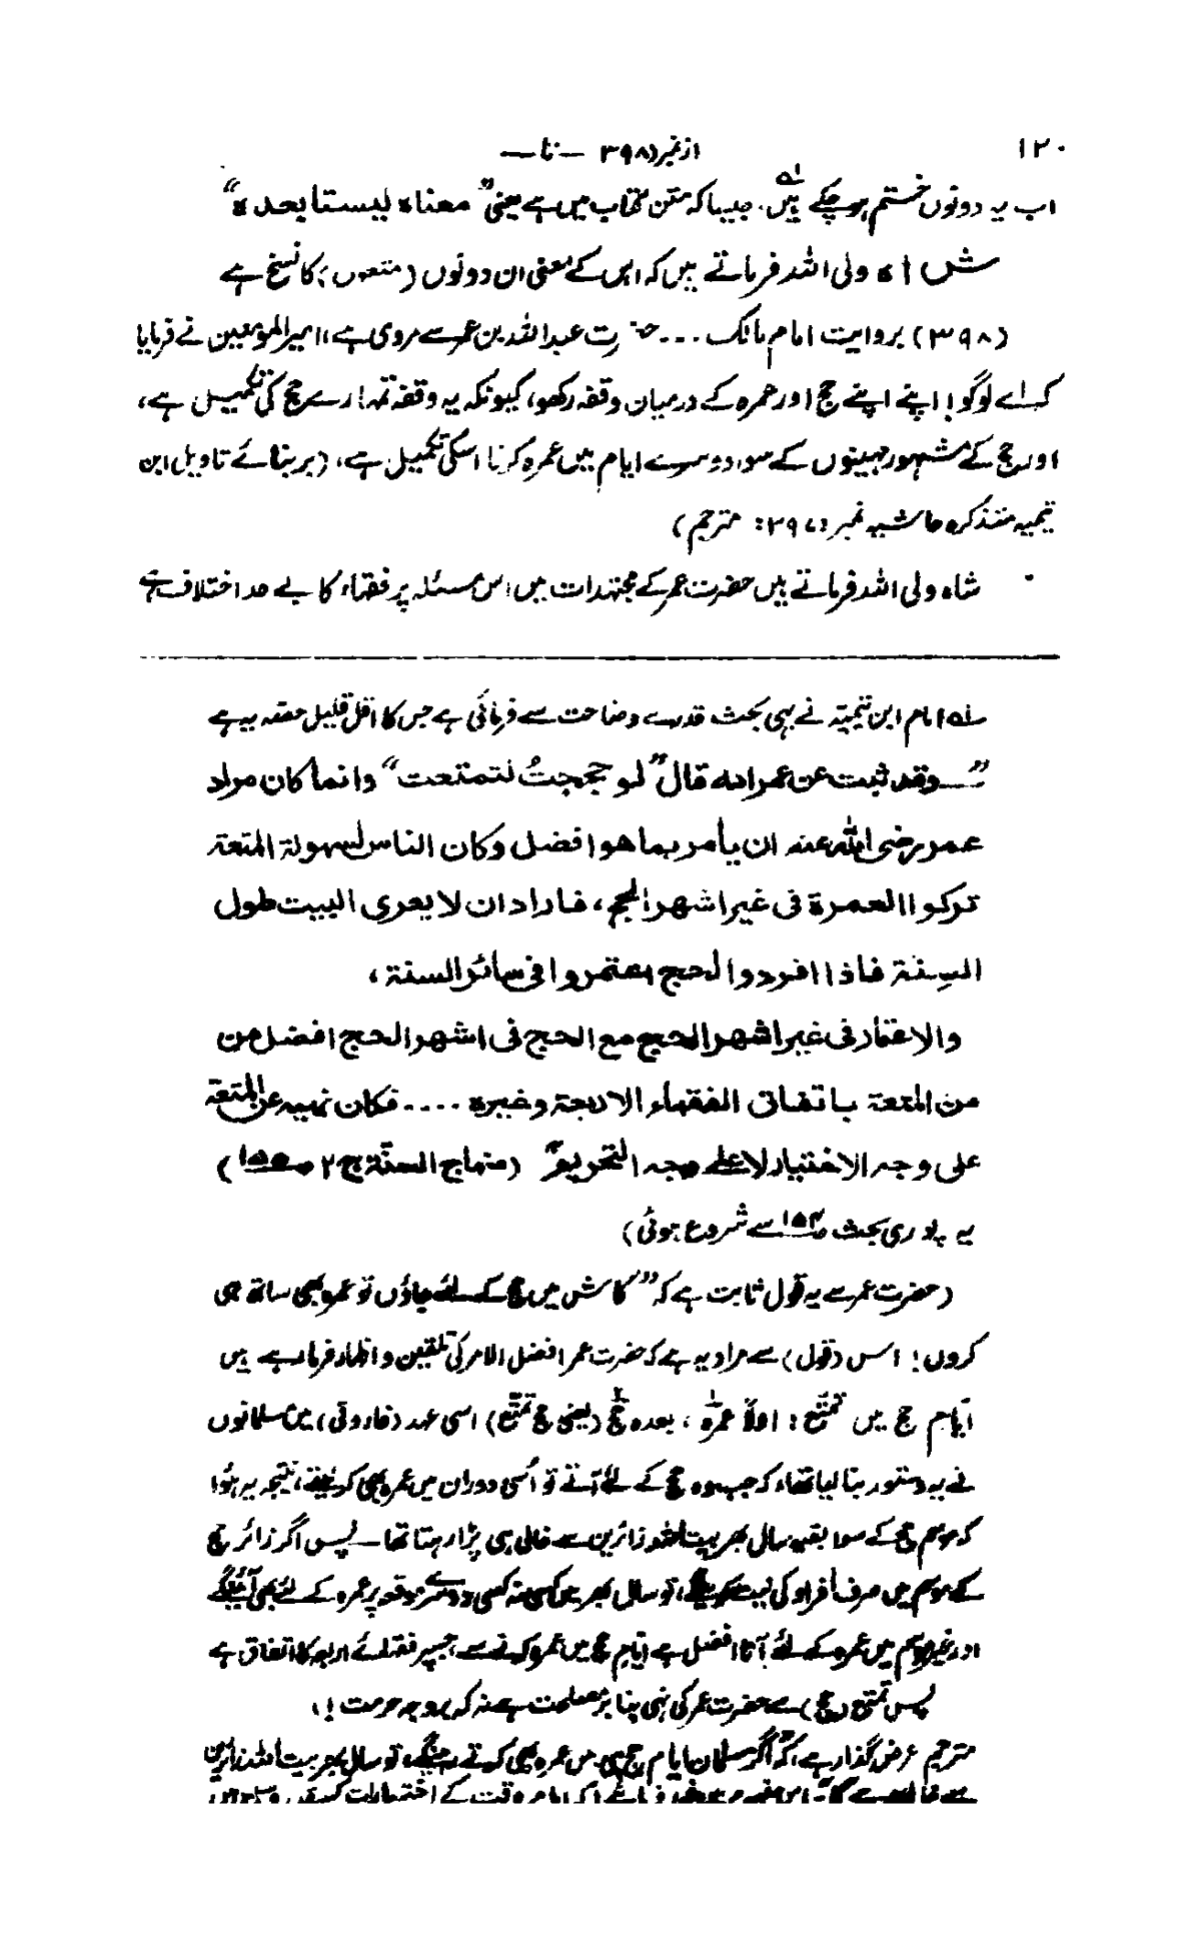 ۱۲۰
از نمبر (۳۹۸ — تا —
اب یہ دونوں ختم ہو چکے ہیں۔ جیسا کہ متن کتاب میں ہے یعنی ”معناہ لیستا بعدہ“
شاہ ولی اللہ فرماتے ہیں کہ اس کے معنی ان دونوں (متعوں) کا نسخ ہے
(۳۹۸) بروایت امام مالک ... حضرت عبداللہ بن عمر سے مروی ہے، امیر المومنین نے فرمایا
کہ اے لوگو! اپنے اپنے حج اور عمرہ کے درمیان وقفہ رکھو، کیونکہ یہ وقفہ تمہارے حج کی تکمیل ہے،
اور حج کے مشہور مہینوں کے سوا دوسرے ایام میں عمرہ کرنا اسکی تکمیل ہے، (بر بنائے تاویل ابن
تیمیہ متذکرہ حاشیہ نمبر ۳۹۷: مترجم)
شاہ ولی اللہ فرماتے ہیں حضرت عمر کے مجتہدات میں اس مسئلہ پر فقہاء کا بے حد اختلاف ہے
لہ امام ابن تیمیہؒ نے یہی بحث قدرے وضاحت سے فرمائی ہے جس کا اقل قلیل حصہ یہ ہے
”— وقد ثبت عن عمر انہ قال ”لو حججتُ لتمتعت“ وانما کان مراد
عمر رضی اللہ عنہ ان یأمر بما ھو افضل وکان الناس لسھولۃ المتعۃ
ترکوا العمرۃ فی غیر اشھر الحج، فاراد ان لا یعری البیت طول
السنۃ فاذا افردوا لحج اعتمروا فی سائر السنۃ،
والاعتمار فی غیر اشھر الحج مع الحج فی اشھر الحج افضل من
من المتعۃ باتفاق الفقھاء الاربعۃ وغیرہ .... فکان نھیہ عن المتعۃ
علی وجہ الاختیار لا علی وجہ التحریم“ (منہاج السنۃ ج ۲ ص۱۵۵)
یہ پوری بحث ص۱۵۴ سے شروع ہوئی)
(حضرت عمر سے یہ قول ثابت ہے کہ ”کاش میں حج کے لئے جاؤں تو عمرہ بھی ساتھ ہی
کروں! اس (قول) سے مراد یہ ہے کہ حضرت عمر افضل الامر کی تلقین و اظہار فرما رہے ہیں
ایّام حج میں تمتّع: اولاً عمرہ، بعدہ حج (یعنی حج تمتّع) اسی عہد (فاروقی) میں مسلمانوں
نے یہ دستور بنا لیا تھا، کہ جب وہ حج کے لئے آتے تو اُسی دوران میں عمرہ بھی کر لیتے، نتیجہ یہ ہُوا
کہ موسم حج کے سوا بقیہ سال بھر بیت اللہ زائرین سے خالی ہی پڑا رہتا تھا۔ پس اگر زائر حج
کے موسم میں صرف اُفراد کی نیت کریگا، تو سال بھر میں کسی نہ کسی دوسرے موقعہ پر عمرہ کے لئے بھی آئیگا
اور غیر موسم میں عمرہ کے لئے آنا افضل ہے ایّام حج میں عمرہ کرنے سے، جسپر فقہائے اربعہ کا اتفاق ہے
پس تمتع (حج) سے حضرت عمر کی نہی بنا بر مصلحت ہے نہ کہ بوجہ حرمت!،
مترجم عرض گذار ہے، کہ اگر مسلمان ایام حج ہی میں عمرہ بھی کرتے رہینگے، تو سال بھر بیت اللہ زائرین
سے خالی رہے گا۔